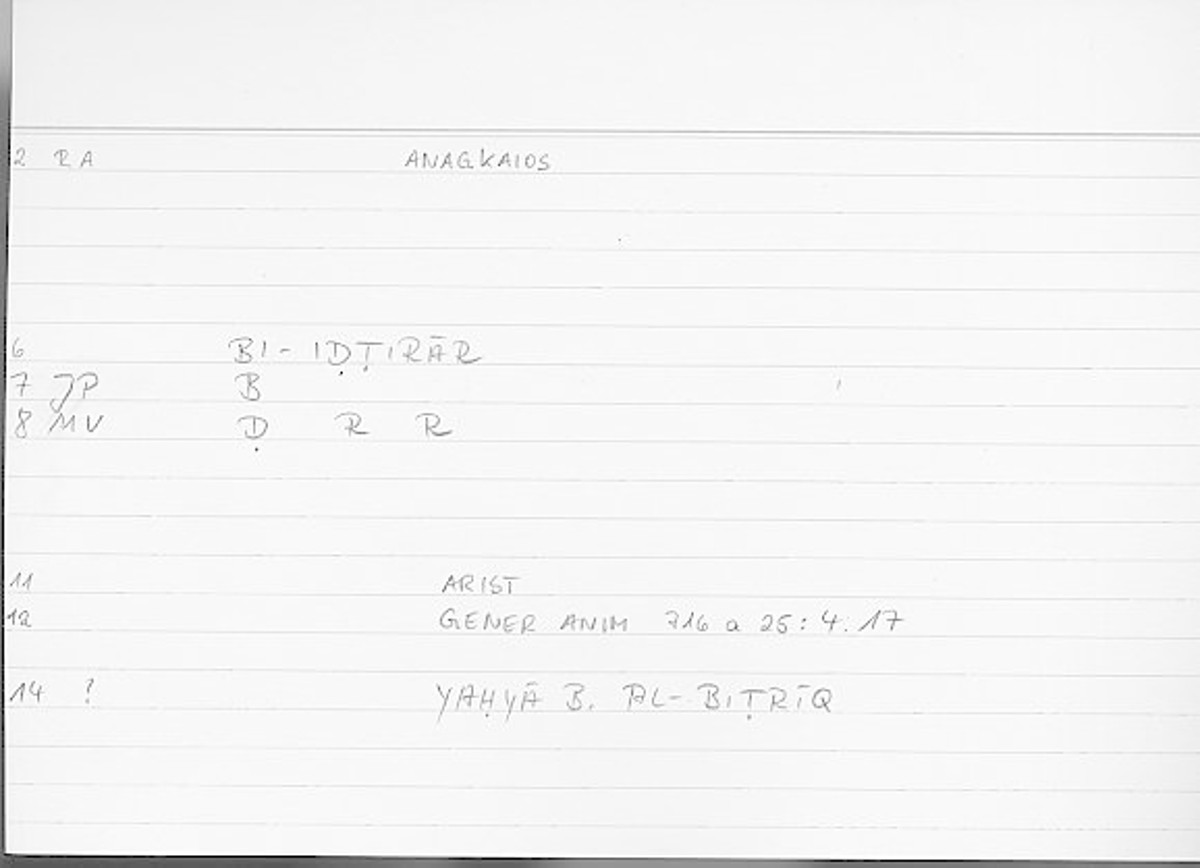 2 RA ANAGKAIOS
6 BI-IḌṬIRĀR
7 JP B
8 MV Ḍ R R
11 ARIST
12 GENER ANIM 716 a 25: 4.17
14 ? YAḤYĀ B. AL-BIṬRĪQ